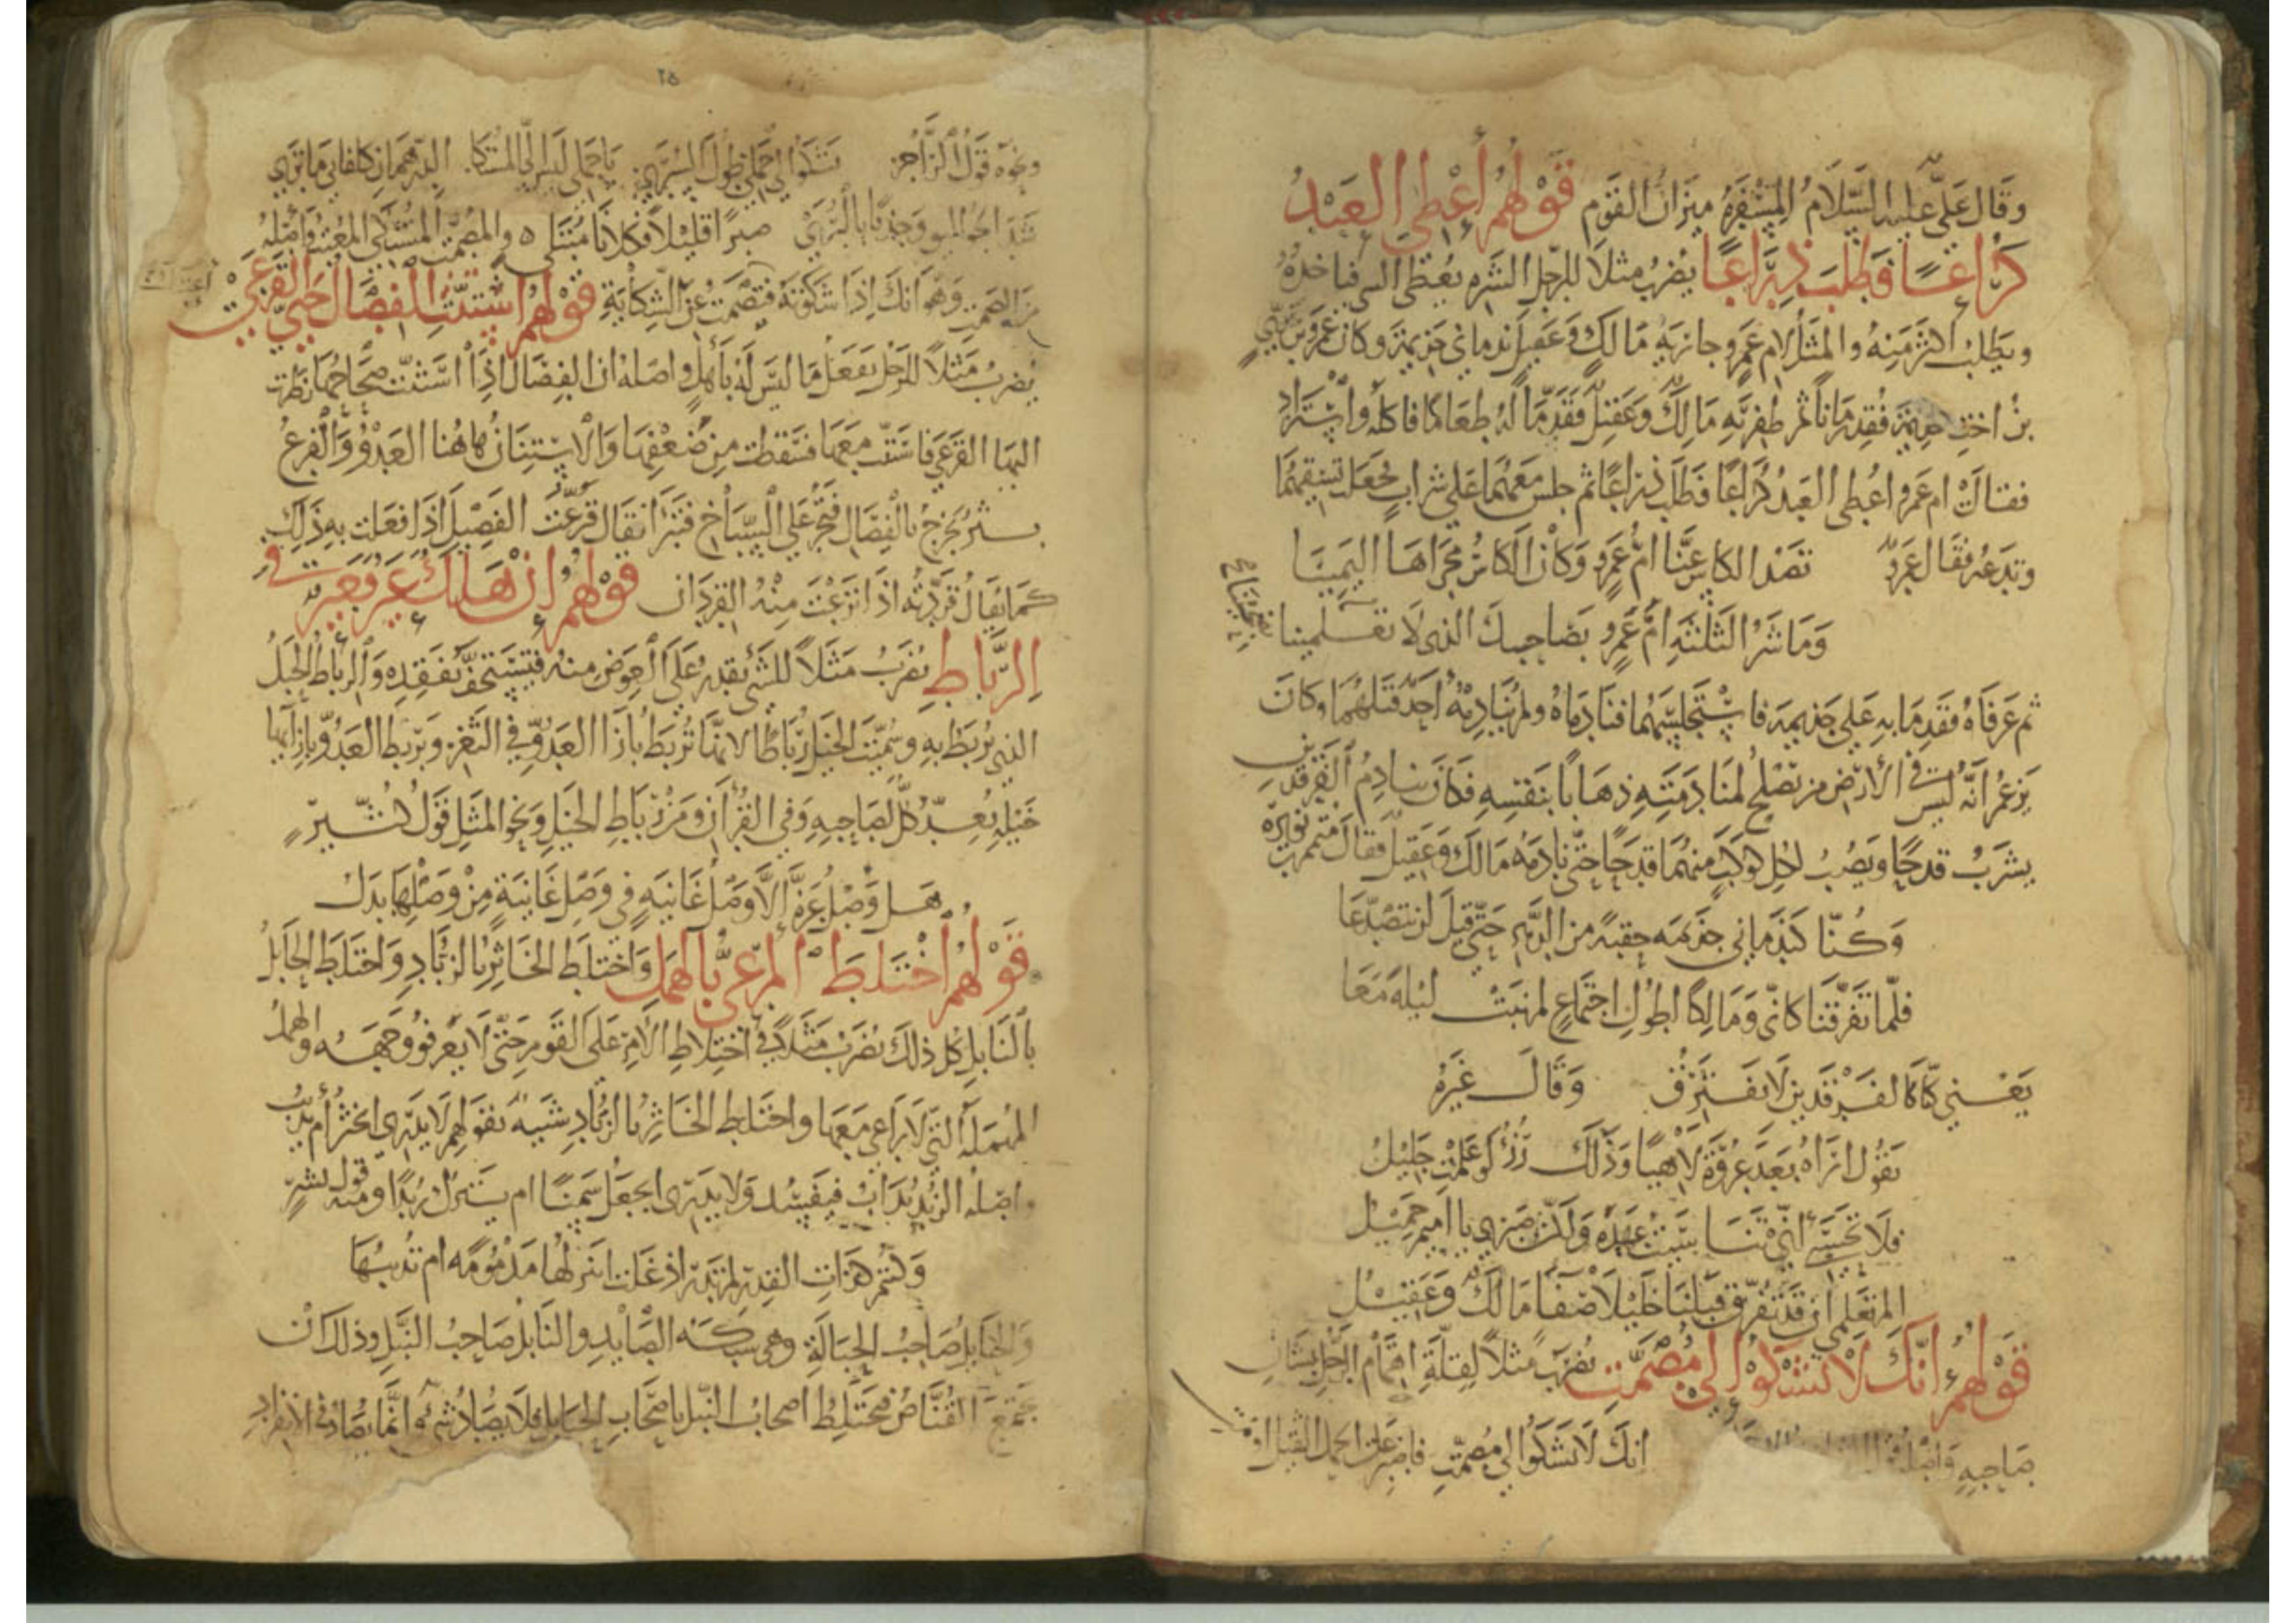 وقال علي عليه السلام السفرة ميزان القوم قولهم أعطي العبد
كراعا فطلب ذراعا يضرب مثلا للرجل الشره يعطى الشي فياخذه
ويطلب اكثر منه والمثل لام عمرو جارية مالك وعقيل ندماني جذيمة وكان عمرو بن عدي
بن اخت جذيمة فقد زمانا ثم ظفر به مالك وعقيل فقدما له طعاما فاكله واستزاد
فقالت ام عمرو اعطي العبد كراعا فطلب ذراعا ثم جلس معهما على شراب فجعلت تسقيهما
وتدعه فقال عمرو تصد الكاس عنا ام عمرو وكان الكاس مجراها اليمينا
وما شر الثلثة ام عمرو بصاحبك الذي لا تصبحينا
ثم عرفاه فقدما به على جذيمة فاستجلسهما فنادماه ولم ينادمه أحد قبلهما وكان
يزعم أنه ليس في الأرض من تصلح لمنادمته ذهابا بنفسه فكان ينادم الفرقدين
يشرب قدحا ويصب لكل كوكب منهما قدحا حتى نادمه مالك وعقيل فقال متمم بن نويرة
وكنا كندماني جذيمه حقبة من الدهر حتى قيل لن نتصدعا
فلما تفرقنا كاني ومالكا لطول اجتماع لم نبت ليلة معا
يعني كنا كالفرقدين لا نفترق وقال غيره
تقول اراه بعد عروة لاهيا وذلك رزؤ لو علمت جليل
فلا تحسبي أني تناسيت عهده ولكن صبري يا اميم جميل
الم تعلمي أن قد تفرق قبلنا خليلا صفا مالك وعقيل
قولهم إنك لا تشكو إلى مصمت يضرب مثلا لقلة اهتمام الرجل بشان
صاحبه واصله انك لا تشكوا الى مصمت فاصبر على الحمل الثقيل او مت
٢٥
ونحوه قول الراجز تشكوا الي جملي طول السرى يا جملي ليس الي المشتكا الدرهمان كلفاني ما ترى
شد الجواليق وجذبا بالبرى صبرا قليلا فكلانا مبتلى والمصمت المشتكي المعتب وأصله
من الصمت وهو انك إذا شكوته فتصمت عن الشكاية قولهم استنت الفصال حتى القرعى
يضرب مثلا للرجل يفعل ما ليس له بأهل واصله ان الفصال اذا استنت صحاحها نظرت
اليها القرعى فاستنت معها فسقطت من ضعفها والاستنان هاهنا العدو والقرع
بثر يخرج بالفصال فتجر على السباخ فتبرأ يقال قرعت الفصيل اذا فعلت به ذلك
كما يقال قردته اذا نزعت منه القردان قولهم إن هلك عير فعير في
الرباط يضرب مثلا للشي يقدر على العوض منه فيستخف بفقده والرباط الحبل
الذي يربط به وسميت الخيل رباطا لانها تربط بازا العدو في الثغر ويربط العدو بازايها
خيله يعد كل لصاحبه وفي القرآن ومن رباط الخيل ونحو المثل قول كثير
هل وصل عزة إلا وصل غانيه في وصل غانية من وصلها بدل
قولهم اختلط المرعي بالهمل واختلط الخاثر بالزباد واختلط الحابل
بالنابل كل ذلك يضرب مثلا في اختلاط الامر على القوم حتى لا يعرفو وجهه والهمل
المهملة التي لا راعي معها واختلط الخاثر بالزباد شبيه بقولهم لا يدري ايخثر أم يذيب
واصله الزبد يذاب فيفسد ولا يدرى ايجعل سمنا ام يترك زبدا ومنه قول بشر
وكنتم كذات القدر لم تدر اذ غلت اتنزلها مذمومه ام تذيبها
والحابل صاحب الحبالة وهي شبكه الصايد والنابل صاحب النبل وذلك أن
يجتمع القناص فيختلط اصحاب النبل باصحاب الحبايل فلا يصاد شي وانما يصاد في الانفراد